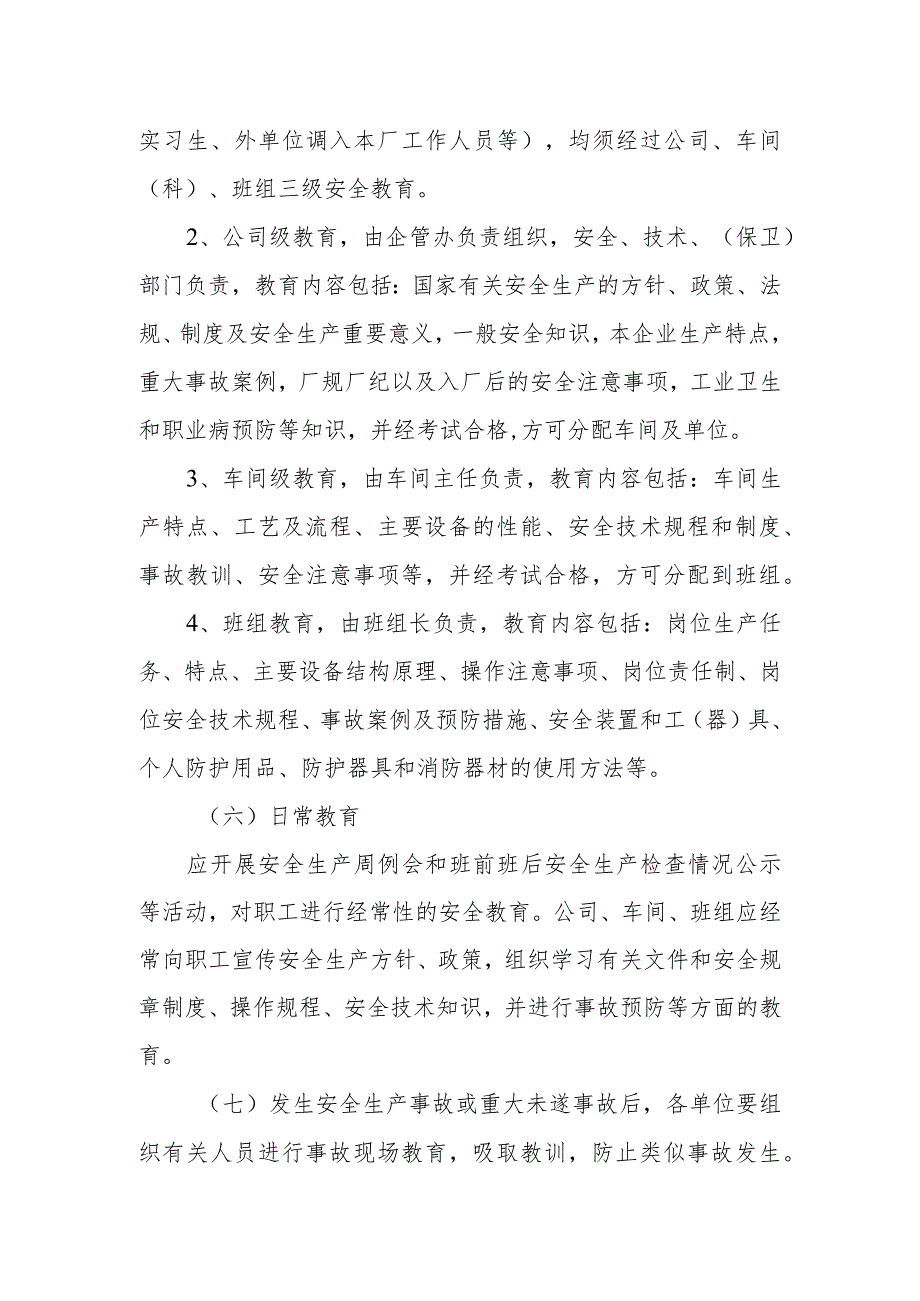 实习生、外单位调入本厂工作人员等），均须经过公司、车间
（科）、班组三级安全教育。
2、公司级教育，由企管办负责组织，安全、技术、（保卫）
部门负责，教育内容包括：国家有关安全生产的方针、政策、法
规、制度及安全生产重要意义，一般安全知识，本企业生产特点，
重大事故案例，厂规厂纪以及入厂后的安全注意事项，工业卫生
和职业病预防等知识，并经考试合格,方可分配车间及单位。
3、车间级教育，由车间主任负责，教育内容包括：车间生
产特点、工艺及流程、主要设备的性能、安全技术规程和制度、
事故教训、安全注意事项等，并经考试合格，方可分配到班组。
4、班组教育，由班组长负责，教育内容包括：岗位生产任
务、特点、主要设备结构原理、操作注意事项、岗位责任制、岗
位安全技术规程、事故案例及预防措施、安全装置和工（器）具、
个人防护用品、防护器具和消防器材的使用方法等。
（六）日常教育
应开展安全生产周例会和班前班后安全生产检查情况公示
等活动，对职工进行经常性的安全教育。公司、车间、班组应经
常向职工宣传安全生产方针、政策，组织学习有关文件和安全规
章制度、操作规程、安全技术知识，并进行事故预防等方面的教
育。
（七）发生安全生产事故或重大未遂事故后，各单位要组
织有关人员进行事故现场教育，吸取教训，防止类似事故发生。